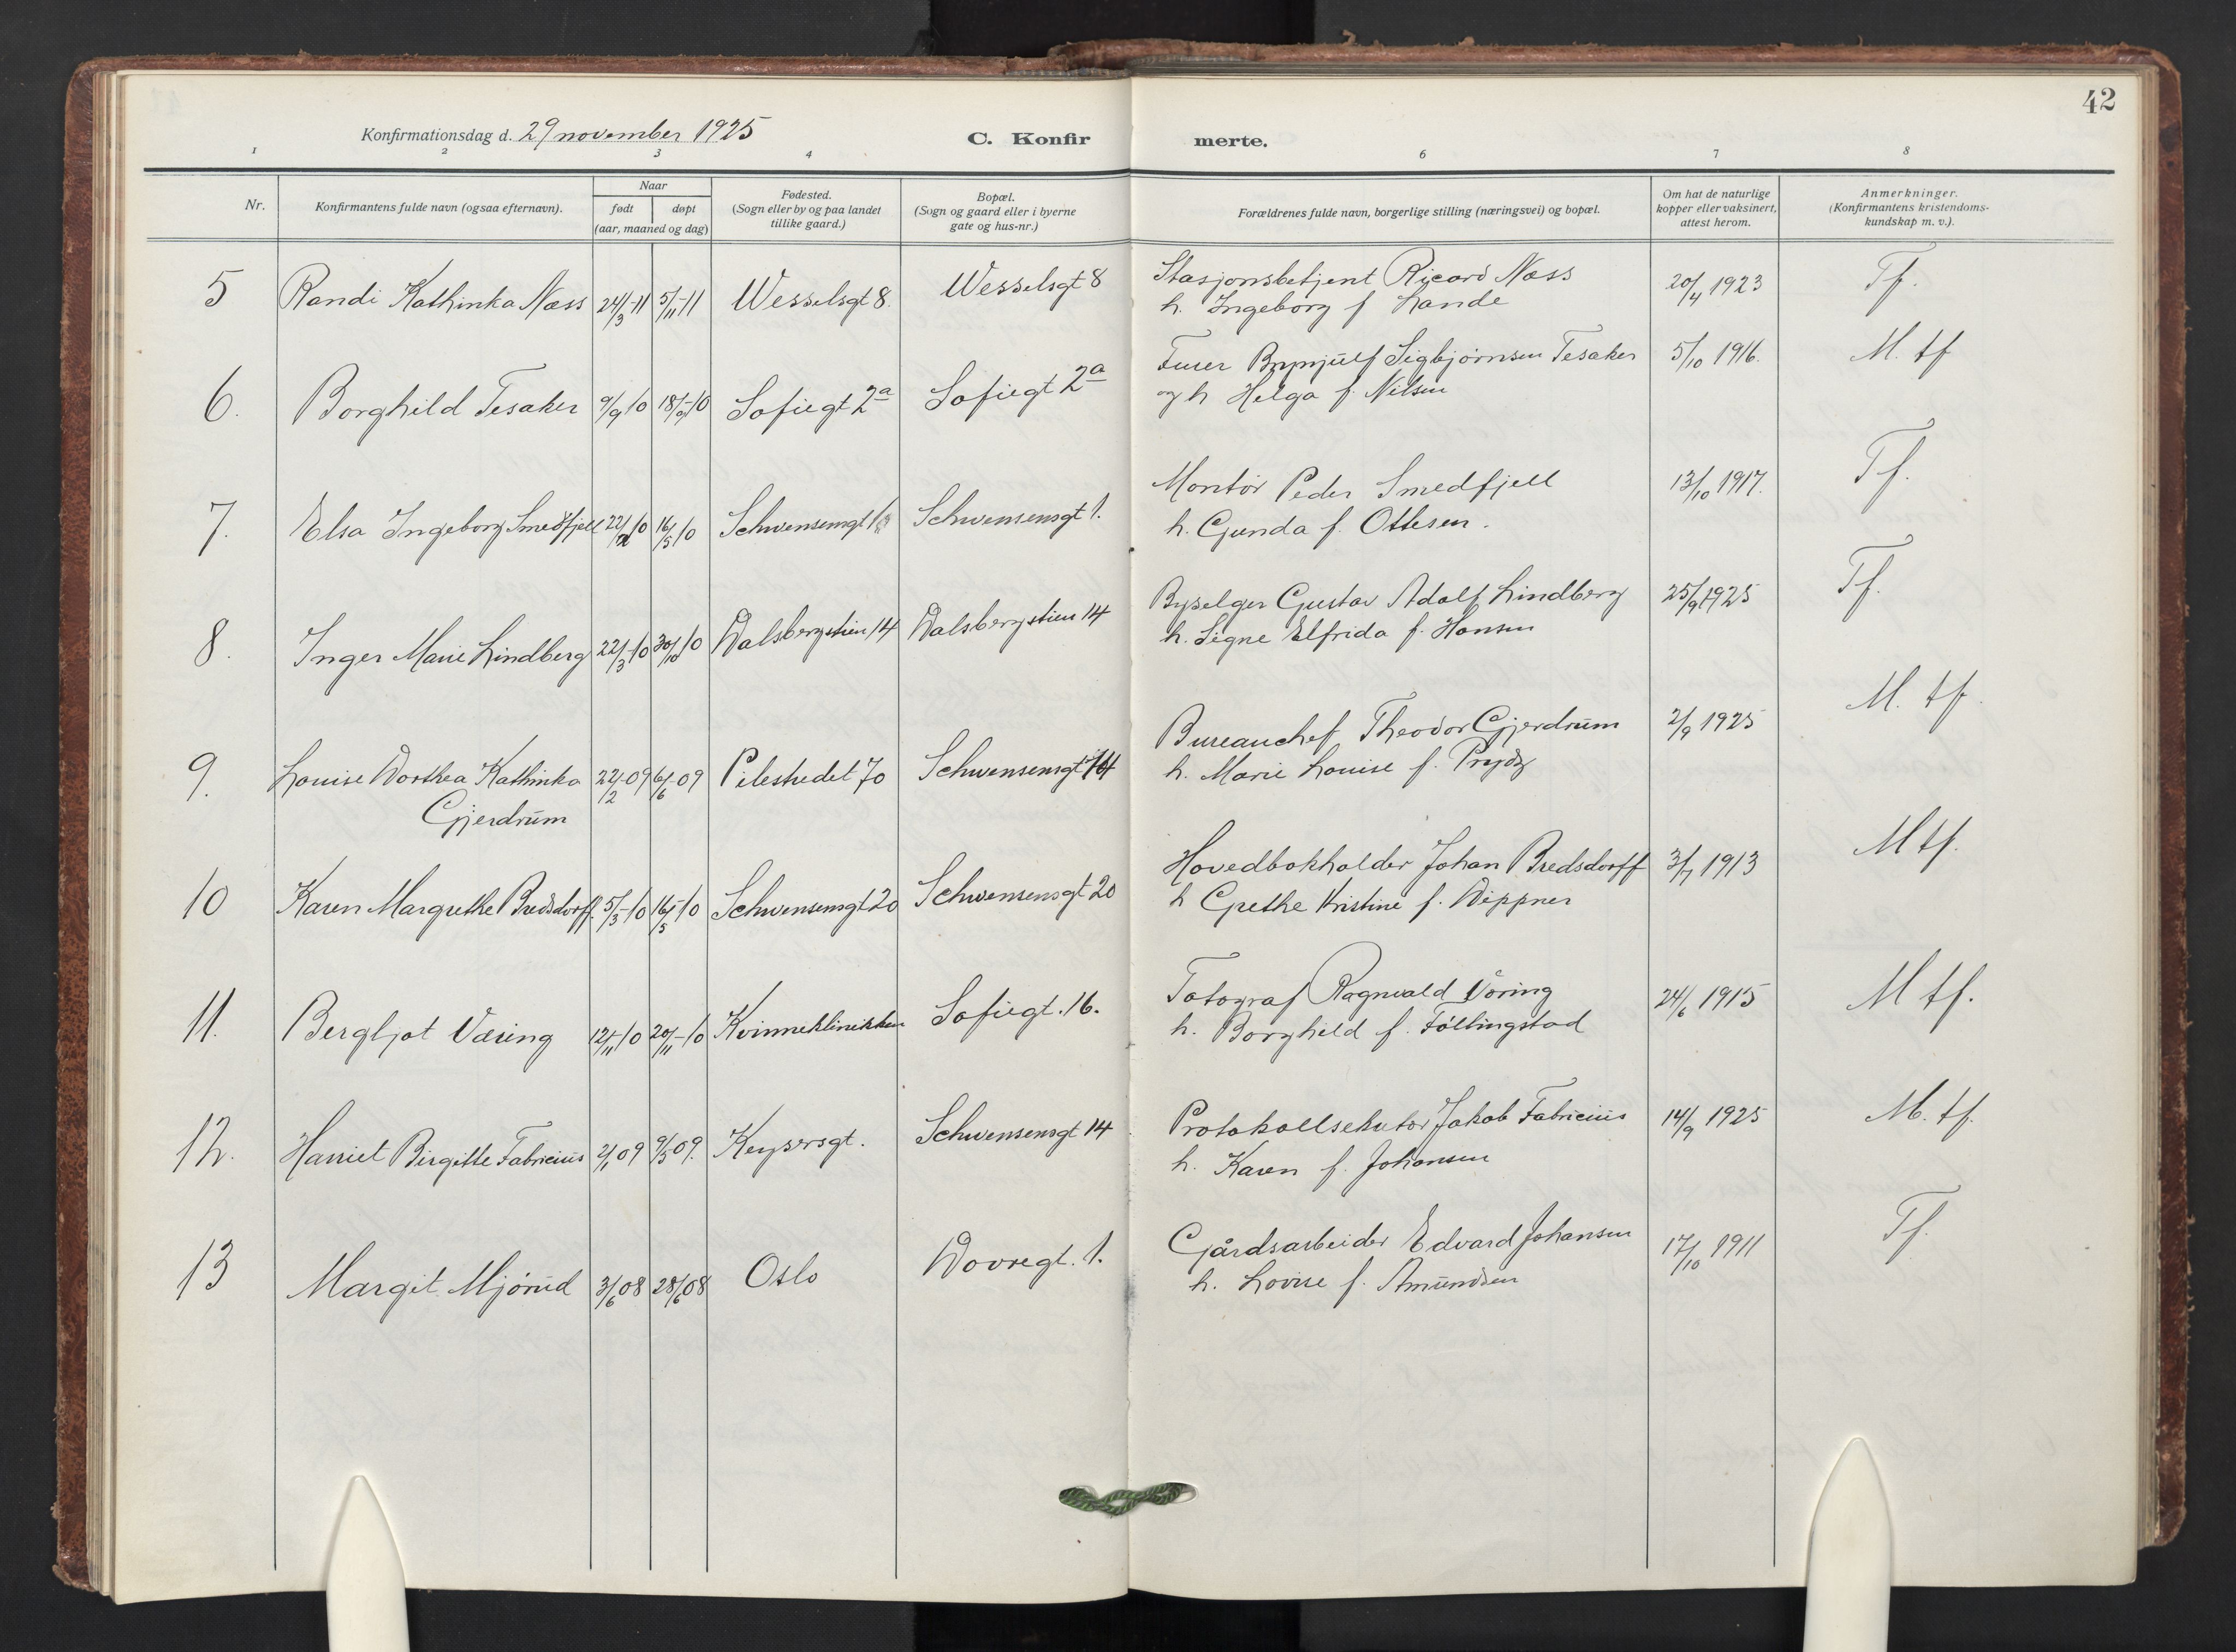 42
Konfirmationsdag d. 29 november 1925
C. Konfir merte.
1 2 3 4 6 7 8
Nr.
Konfirmantens fulde navn (ogsaa efternavn).
Naar
født døpt
(aar, maaned og dag)
Fødested.
(Sogn eller by og paa landet
tillike gaard.)
Bopæl.
(Sogn og gaard eller i byerne
gate og hus-nr.)
Forældrenes fulde navn, borgerlige stilling (næringsvei) og bopæl.
Om hat de naturlige
kopper eller vaksinert,
attest herom.
Anmerkninger.
(Konfirmantens kristendoms-
kundskap m. v.).
5 Randi Kathinka Næss 24/3-11 5/11-11 Wesselsgt 8. Wesselsgt 8 Stasjonsbetjent Ricard Næss 20/4 1923 Tf.
h. Ingeborg f Lande
6. Borghild Tesaker 9/9 10 18/9-10 Sofiegt 2a Sofiegt 2a Furer Brynjulf Sigbjørnsen Tesaker 5/10 1916. M. tf
og h Helga f. Nilsen
7. Elsa Ingeborg Smedfjell 22/2 10 16/5 10 Schwensensgt 1 Schwensensgt 1. Montør Peder Smedfjell 13/10 1917. Tf.
h. Gunda f. Ottesen.
8. Inger Marie Lindberg 22/3-10 30/10 10 Dalsbergstien 14 Dalsbergstien 14 Byselger Gustav Adolf Lindberg 25/9 1925 Tf.
h. Signe Elfrida f. Hansen
9. Louise Dorthea Kathinka 22/2-09 6/6-09 Pilestredet 70 Schwensensgt 14 Bureauchef Theodor Gjerdrum 2/9 1925 M. tf.
Gjerdrum h. Marie Louise f. Prydz
10 Karen Margrethe Bredsdorff. 5/3-10 16/5-10 Schwensensgt 20 Schwensensgt 20 Hovedbokholder Johan Bredsdorff 3/7 1913 M tf.
h Grethe Kristine f. Dippner
11. Bergljot Væring 12/11-10 20/11-10 Kvinneklinikken Sofiegt. 16. Fotograf Ragnvald Vöring 24/6 1915 M tf.
h. Borghild f. Föllingstad
12. Harriet Birgitte Fabricius 2/1 09 9/5 09. Keysersgt. Schwensensgt 14 Protokollsekretær Jakob Fabricius 14/9 1925 M. tf.
h. Karen f. Johansen
13 Margit Mjörud 3/6 08 28/6 08 Oslo Dovregt. 1. Gårdsarbeider Edvard Johansen 17/10 1911 Tf.
h. Lovise f. Amundsen